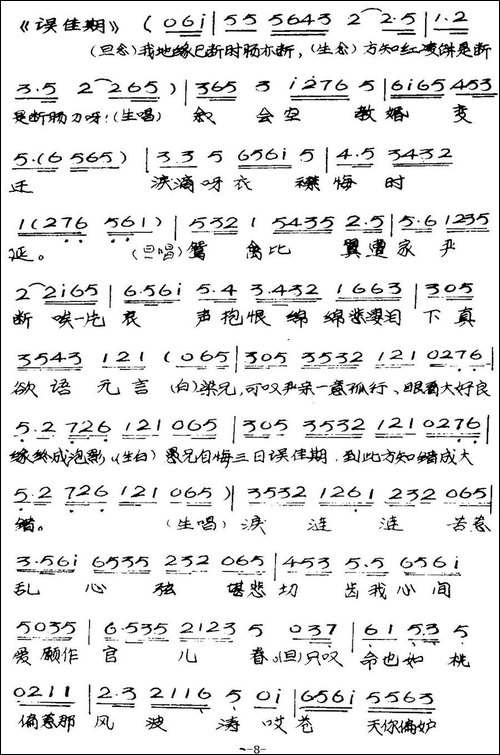 《误佳期》 ( 0 6 i | 5 5 5 6 4 3 2 2·5 | 1·2
(旦念)我地缘已断时肠亦断, (生念) 方知红 是断
3·5 2 2 6 5 ) | 3 6 5 3 i 2 7 6 5 | 6 i 6 5 4 5 3
是断肠刀呀!(生唱) 叙 会空 教婚 变
5·(6 5 6 5) | 3·3 5 6 5 6 i 5 | 4·5 3 4 3 2
迁 泪滴呀衣 襟悔 时
1 (2 7 6 5 6 1) | 5 3 2 1 5 4 3 5 2·5 | 5·6 1 2 3 5
延。 (旦唱)鸳 禽比 翼遭家 严
2 2 i 6 5 | 6·5 6 i 5·4 3·4 3 2 1 6 6 3 | 3 0 5
断 唉一片 哀 声抱恨 绵 绵 泪 下真
3 5 4 3 1 2 1 (0 6 5 | 3 0 5 3 5 3 2 1 2 1 0 2 7 6 |
欲语 无言 (白)梁兄,可叹严亲一意孤行、眼看大好良
5·2 7 2 6 1 2 1 0 6 5 | 3 0 5 3 5 3 2 1 2 1 0 2 7 6 |
缘终成泡影,(生白) 愚兄自悔三日误佳期,到此方知错成大
5·2 7 2 6 1 2 1 0 6 5 ) | 3 5 3 2 1 2 6 1 2 3 2 0 6 5 |
错。 (生唱) 泪 涟 涟 苦惹
3·5 6 i 6 5 3 5 2 3 2 0 6 5 | 4 5 3 5·5 6 5 6 i
乱 心 弦 堪悲 切 齿我 心 间
5 0 3 5 | 6·5 3 5 2 1 2 3 5 0 3 7 | 6 1 5·3 5
爱愿作 官 儿 眷,(旦)只叹 命也如 桃
0 2 1 1 | 2·3 2 1 1 6 5 0 i | 6 5 6 i 5 5 6 3
偏惹那 风 波 涛 哎苍 天你偏妒
-8-